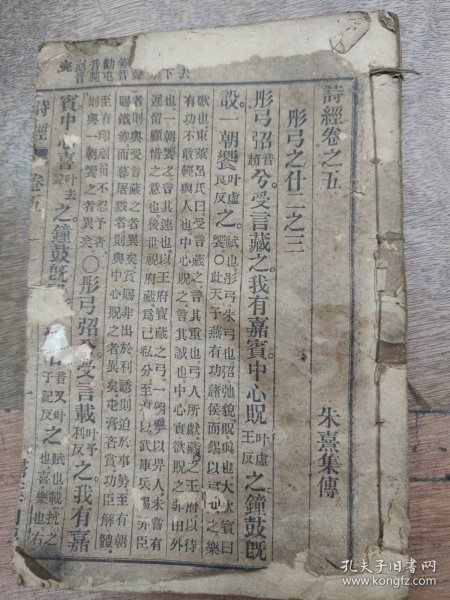 詩經卷之五
朱熹集傳
彤弓之什二之三
彤弓弨音超兮。受言藏之。我有嘉賓。中心貺叶虛王反之。鐘鼓既
設。一朝饗叶虛良反之。賦也。彤弓朱弓也。弨弛貌。貺與也。大飲賓曰
饗。○此天子燕有功諸侯而錫以弓矢之樂
歌也。東萊呂氏曰受言藏之。言其重也。弓人所獻。藏之王府以待
有功不敢輕與人也。中心貺之。言其誠也。中心實欲貺之。非由外
也。一朝饗之。言其速也。以王府寶藏之弓。一朝舉以畀人。未嘗有
遲留顧惜之意也。後世視府藏爲已私分至有以武庫兵賜弄臣
者則與受言藏之者異矣。賞賜非出於利誘則迫於事勢至有朝
賜鐵券而暮屠戮者則與中心貺之者異矣。屯膏吝賞功臣解體
至有印刓而不忍予者則與一朝饗之者異矣。○彤弓弨兮。受言載叶子利反之。我有嘉
賓。中心喜叶去聲之。鐘鼓既
右音又叶于記反之。賦也。載抗之
也。喜樂也。右
詩經
卷五
孔夫子旧书网
book.kongfz.com